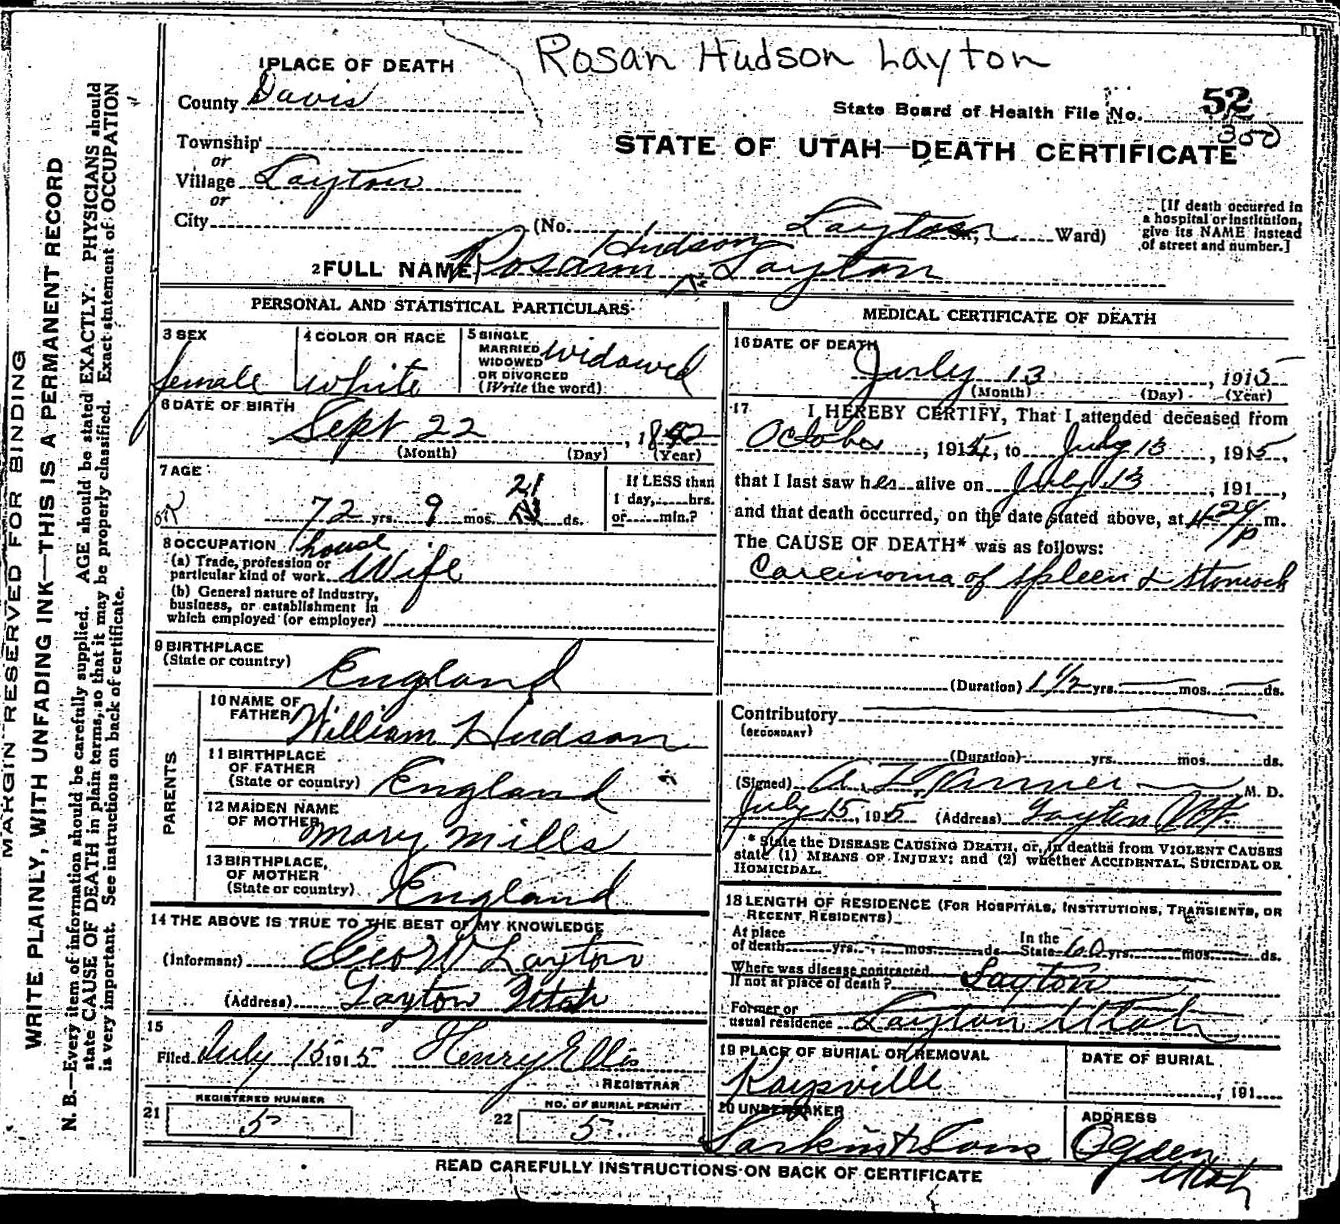 Rosan Hudson Layton
1 PLACE OF DEATH
County Davis
State Board of Health File No. 52
350
Township
or
Village Layton
or
City
STATE OF UTAH—DEATH CERTIFICATE
(No. Layton St; Ward)
[If death occurred in a hospital or institution, give its NAME instead of street and number.]
2 FULL NAME Rosann Hudson Layton
PERSONAL AND STATISTICAL PARTICULARS
3 SEX
female
4 COLOR OR RACE
white
5 SINGLE
MARRIED
WIDOWED
OR DIVORCED
(Write the word)
widowed
6 DATE OF BIRTH
Sept 22, 1842
(Month) (Day) (Year)
7 AGE
72 yrs. 9 mos. 21 ds.
If LESS than
1 day, hrs.
or min.?
8 OCCUPATION
(a) Trade, profession or
particular kind of work house Wife
(b) General nature of Industry,
business, or establishment in
which employed (or employer)
9 BIRTHPLACE
(State or country) England
PARENTS
10 NAME OF
FATHER William Hudson
11 BIRTHPLACE
OF FATHER
(State or country) England
12 MAIDEN NAME
OF MOTHER Mary Mills
13 BIRTHPLACE
OF MOTHER
(State or country) England
14 THE ABOVE IS TRUE TO THE BEST OF MY KNOWLEDGE
(Informant) Geo W Layton
(Address) Layton Utah
15
Filed July 15 1915 Henry Ellis
REGISTRAR
21 REGISTERED NUMBER
5
22 NO. OF BURIAL PERMIT
5
MEDICAL CERTIFICATE OF DEATH
16 DATE OF DEATH
July 13, 1915
(Month) (Day) (Year)
17 I HEREBY CERTIFY, That I attended deceased from
October, 1914, to July 13, 1915,
that I last saw her alive on July 13, 191 ,
and that death occurred, on the date stated above, at 4 20/P m.
The CAUSE OF DEATH* was as follows:
Carcinoma of Spleen & Stomach
(Duration) 1 1/2 yrs. mos. ds.
Contributory
(SECONDARY)
(Duration) yrs. mos. ds.
(Signed) M. D.
July 15, 1915 (Address) Layton Ut
* State the DISEASE CAUSING DEATH, or, in deaths from VIOLENT CAUSES
state (1) MEANS OF INJURY; and (2) whether ACCIDENTAL, SUICIDAL OR
HOMICIDAL.
18 LENGTH OF RESIDENCE (FOR HOSPITALS, INSTITUTIONS, TRANSIENTS, OR
RECENT RESIDENTS)
At place
of death yrs. mos. ds. In the
State 60 yrs. mos. ds.
Where was disease contracted
If not at place of death? Layton
Former or
usual residence Layton Utah
19 PLACE OF BURIAL OR REMOVAL
Kaysville
DATE OF BURIAL
, 191
20 UNDERTAKER
Larkin & Sons
ADDRESS
Ogden
Utah
READ CAREFULLY INSTRUCTIONS ON BACK OF CERTIFICATE
MARGIN RESERVED FOR BINDING
WRITE PLAINLY, WITH UNFADING INK—THIS IS A PERMANENT RECORD
N. B.—Every item of information should be carefully supplied. AGE should be stated EXACTLY. PHYSICIANS should
state CAUSE OF DEATH in plain terms, so that it may be properly classified. Exact statement of OCCUPATION
is very important. See instructions on back of certificate.